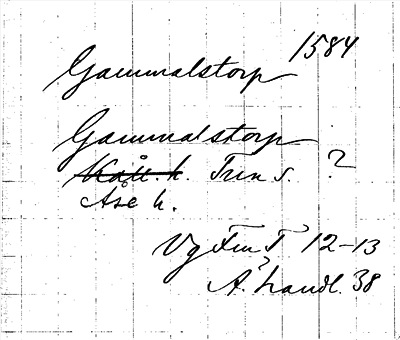 Gammalstorp 1584
Gammalstorp
Kåll. h. Trin s. ?
Åse h.
Vg Fm T 12-13
A. handl. 38